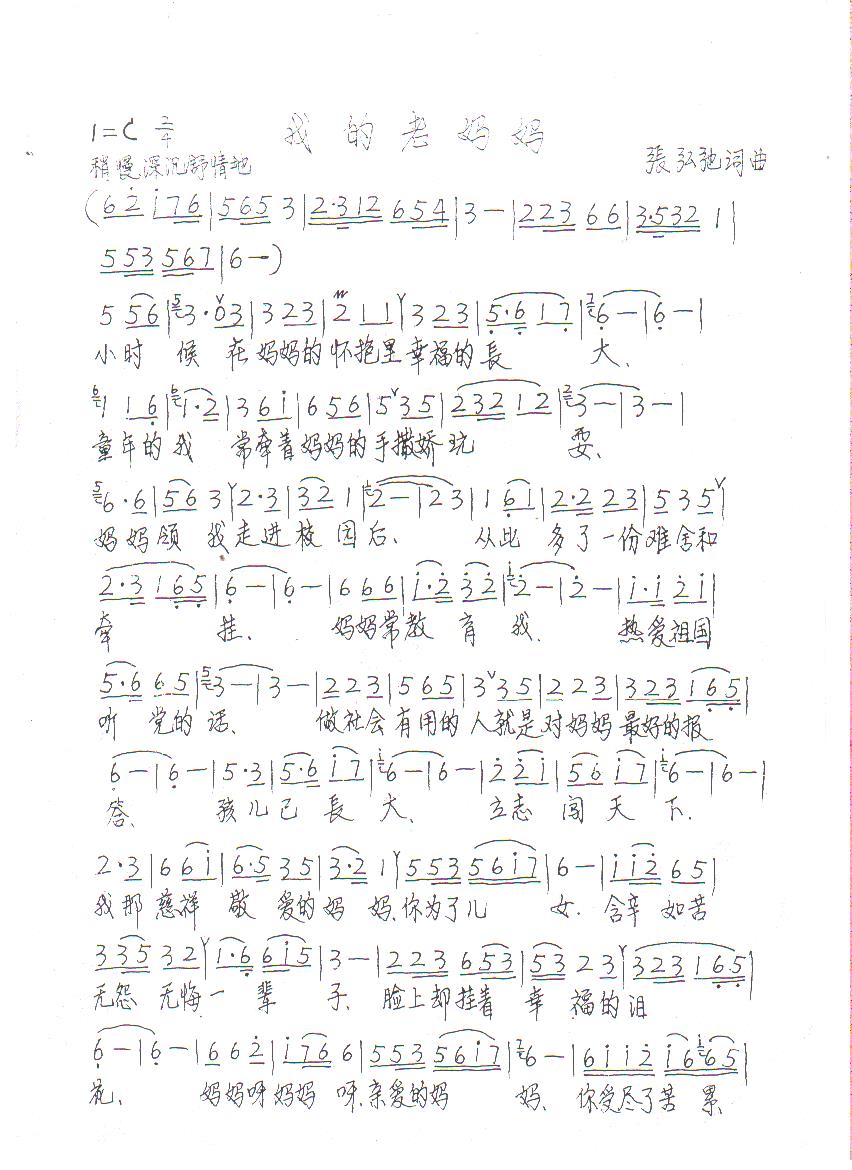 1=C 2/4 我的老妈妈
稍慢深沉舒情地 張弘弛词曲
(6 2̇ i̇ 7 6 | 5 6 5 3 | 2·3 1 2 6 5 4 | 3 — | 2 2 3 6 6 | 3·5 3 2 1 |
5 5 3 5 6 7 | 6 — )
5 5 6 | 3·0 3 | 3 2 3 | 2 1 1 | 3 2 3 | 5·6 1 7 | 6 — | 6 — |
小时 候 在妈妈的怀抱里幸福的長 大、
1 1 6 | 1·2 | 3 6 i̇ | 6 5 6 | 5 3 5 | 2 3 2 1 2 | 3 — | 3 — |
童年的我 常牵着妈妈的手撒娇玩 耍、
6·6 | 5 6 3 | 2·3 | 3 2 1 | 2 — | 2 3 | 1 6 1 | 2·2 2 3 | 5 3 5 |
妈妈领 我走进校 园后、 从此 多了一份难舍和
2·3 1 6 5 | 6 — | 6 — | 6 6 6 | i̇·2̇ 3̇ 2̇ | 2̇ — | 2̇ — | i̇·i̇ 2̇ i̇ |
牵 挂、 妈妈常教 育 我、 热爱祖国
5·6 6 5 | 3 — | 3 — | 2 2 3 | 5 6 5 | 3 3 5 | 2 2 3 | 3 2 3 1 6 5 |
听 党的 话、 做社会有用的人就是对妈妈最好的报
6 — | 6 — | 5·3 | 5·6 i̇ 7 | 6 — | 6 — | 2̇ 2̇ i̇ | 5 6 i̇ 7 | 6 — | 6 — |
答、 孩儿已 長 大、 立志 闯 天 下.
2·3 | 6 6 i̇ | 6·5 3 5 | 3·2 1 | 5 5 3 5 6 i̇ 7 | 6 — | i̇ i̇ 2̇ 6 5 |
我那 慈祥 敬 爱的妈 妈、你为了儿 女. 含辛 如苦
3 3 5 3 2 | 1·6 6 i̇ 5 | 3 — | 2 2 3 6 5 3 | 5 3 2 3 | 3 2 3 1 6 5 |
无怨 无悔一 辈 子、 脸上却挂着 幸 福的泪
6 — | 6 — | 6 6 2̇ | i̇ 7 6 6 | 5 5 3 5 6 i̇ 7 | 6 — | 6 i̇ i̇ 2̇ i̇ 6 6 5 |
花、 妈妈呀妈妈 呀.亲爱的妈 妈、 你受尽了苦 累、